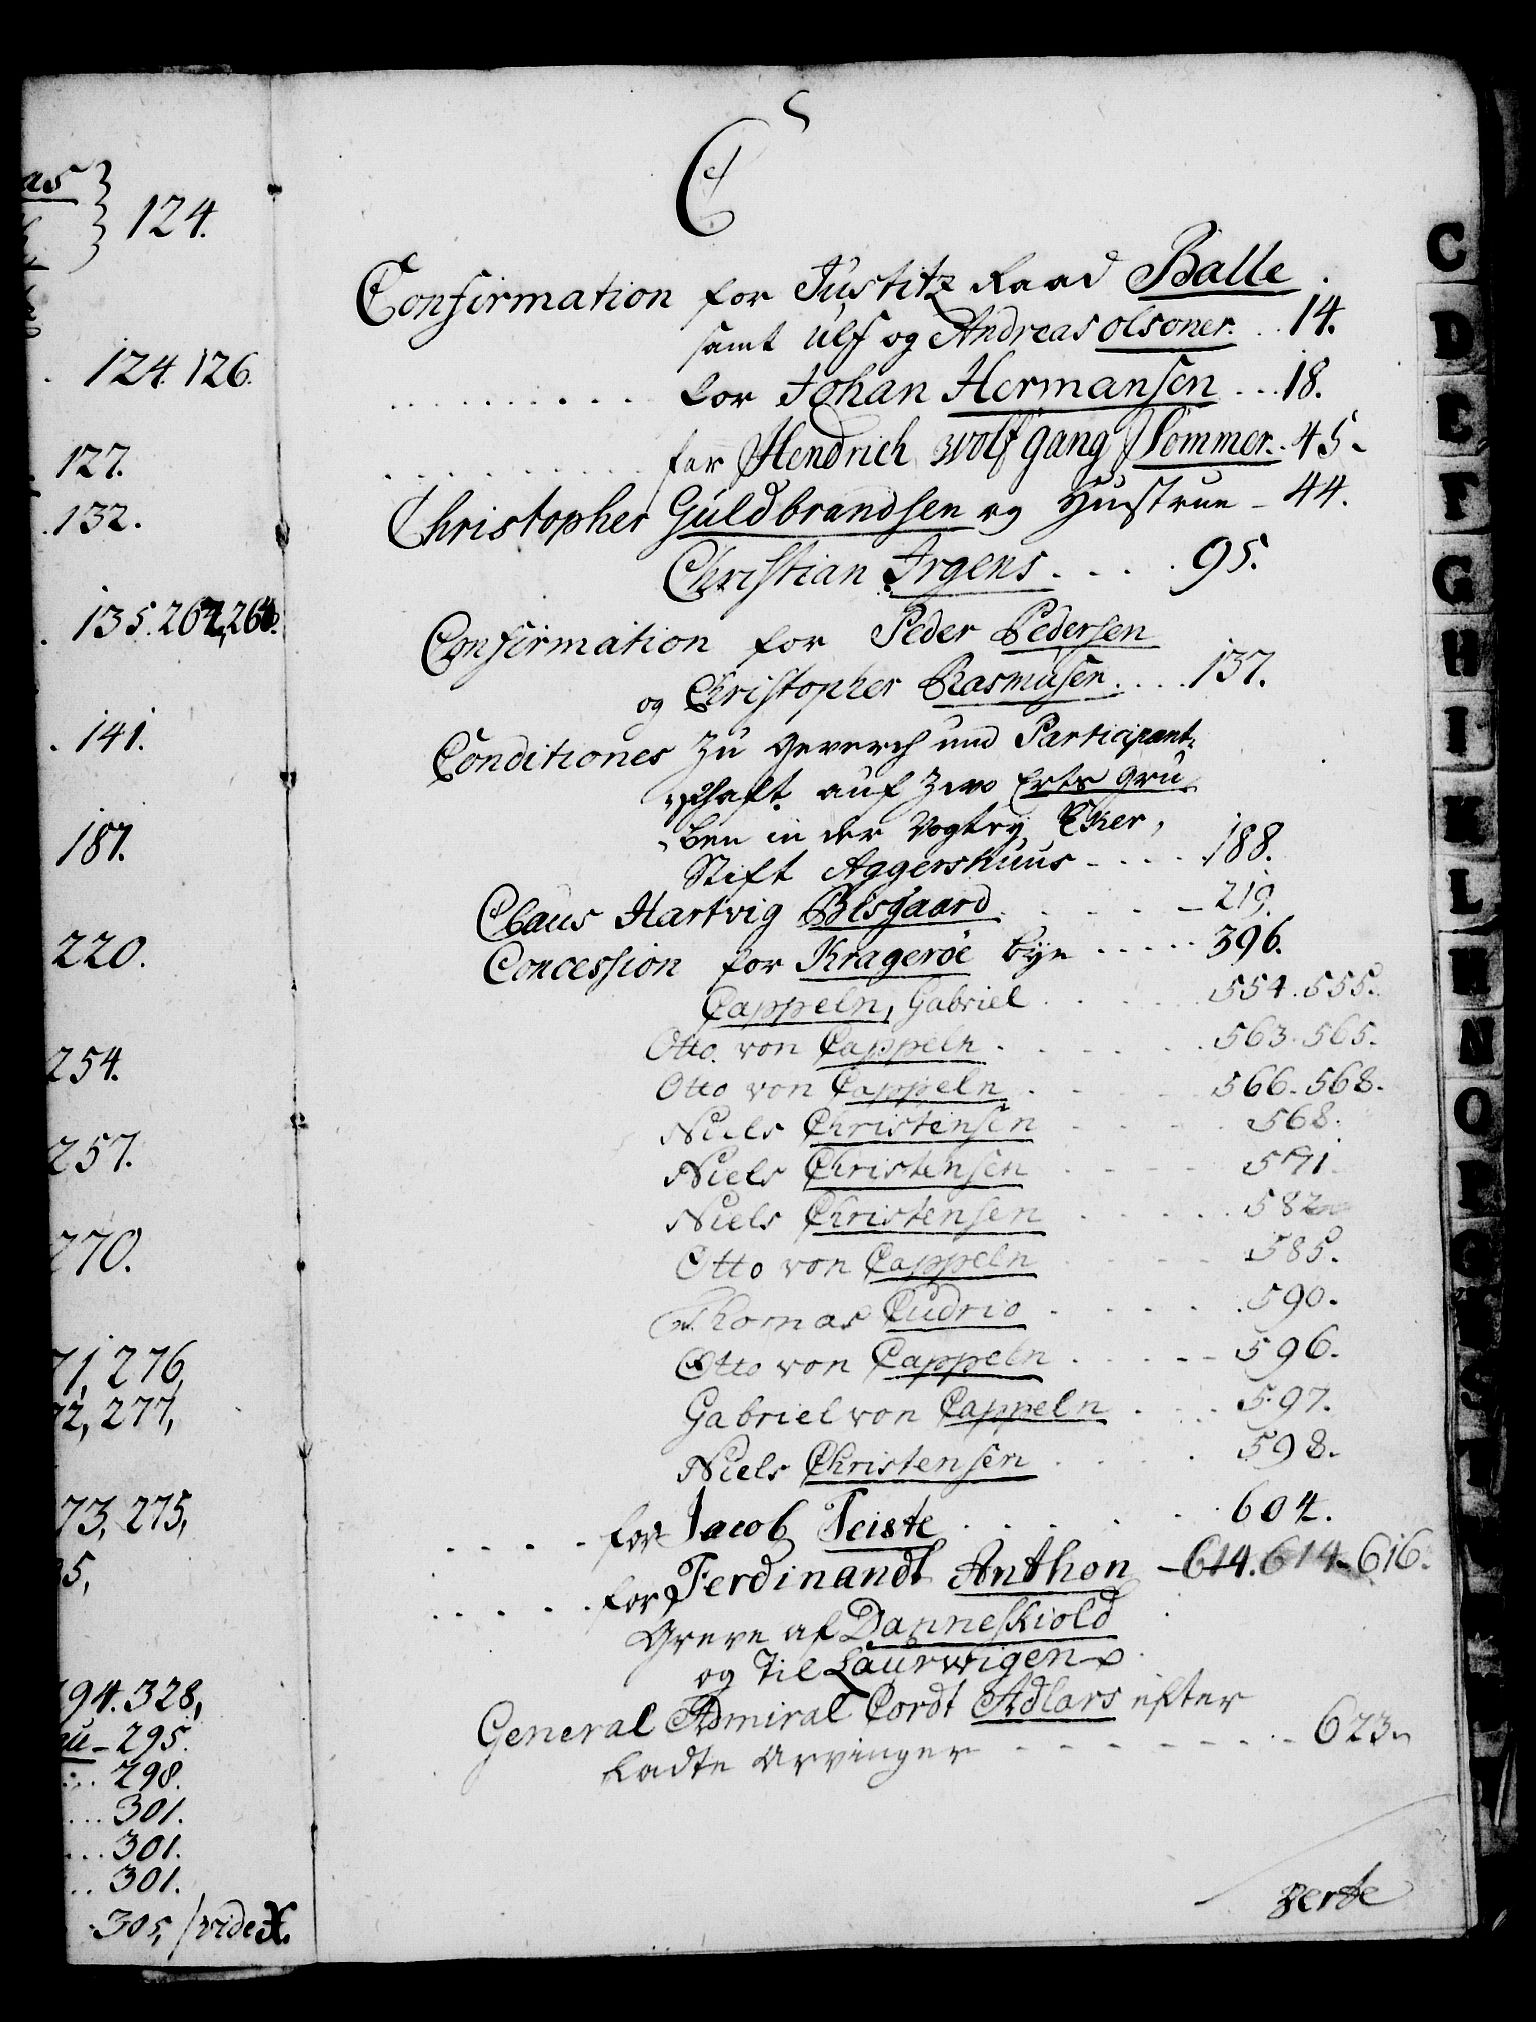 C
Confirmation for Justitz Raad Balle
samt Ulf og Andreas olsoner. .. 14.
.......... for Johan Hermansen ... 18.
.......... for Hendrich Wolfgang Sommer.. 45.
Christopher Guldbrandsen og Hustrue - 44.
Christian Irgens . . . . 95.
Confirmation for Peder Pedersen
og Christopher Rasmusen .... 137.
Conditiones Zu Gewerch und Participant-
schaft auf Zwo Erts Gru-
ben in der Vogtey Eker,
Stift Aggershuus - . . . 188.
Claus Hartvig Bisgaard . . . . - 219.
Concession for Kragerøe bye ..... 396.
Cappeln, Gabriel . . . . 554. 555.
Otto von Cappeln . . . . . 563. 565.
Otto von Cappeln . . . . 566. 568.
Niels Christensen . . . . 568.
Niels Christensen . . . . 571.
Niels Christensen . . . . 582
Otto von Cappeln . . . . 585.
Thomas Cudrio . . . . . 590.
Otto von Cappeln . . . . - 596.
Gabriel von Cappeln . . . 597.
Niels Christensen . . . . 598.
. . . . . for Jacob Teiste . . . . . 604.
. . . . . for Ferdinandt Anthon - 614. 614 - 616.
Greve af Danneskiold
og til Laurwigen
General Admiral Cordt Adlars efter
ladte Arvinger - - - - - - - 623.
verte
as } 124.
124. 126.
127.
132.
135. 262, 264.
141.
187.
220.
254.
257.
270.
71, 276,
72, 277,
73, 275,
5,
194. 328,
295.
298.
301.
301.
301.
305, /vide X.
C
D
E
F
G
H
I
K
L
M
N
O
P
Q
R
S
T